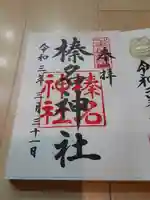 奉拝
榛名神社
榛名
神社
令和三年三月三十一日
令和